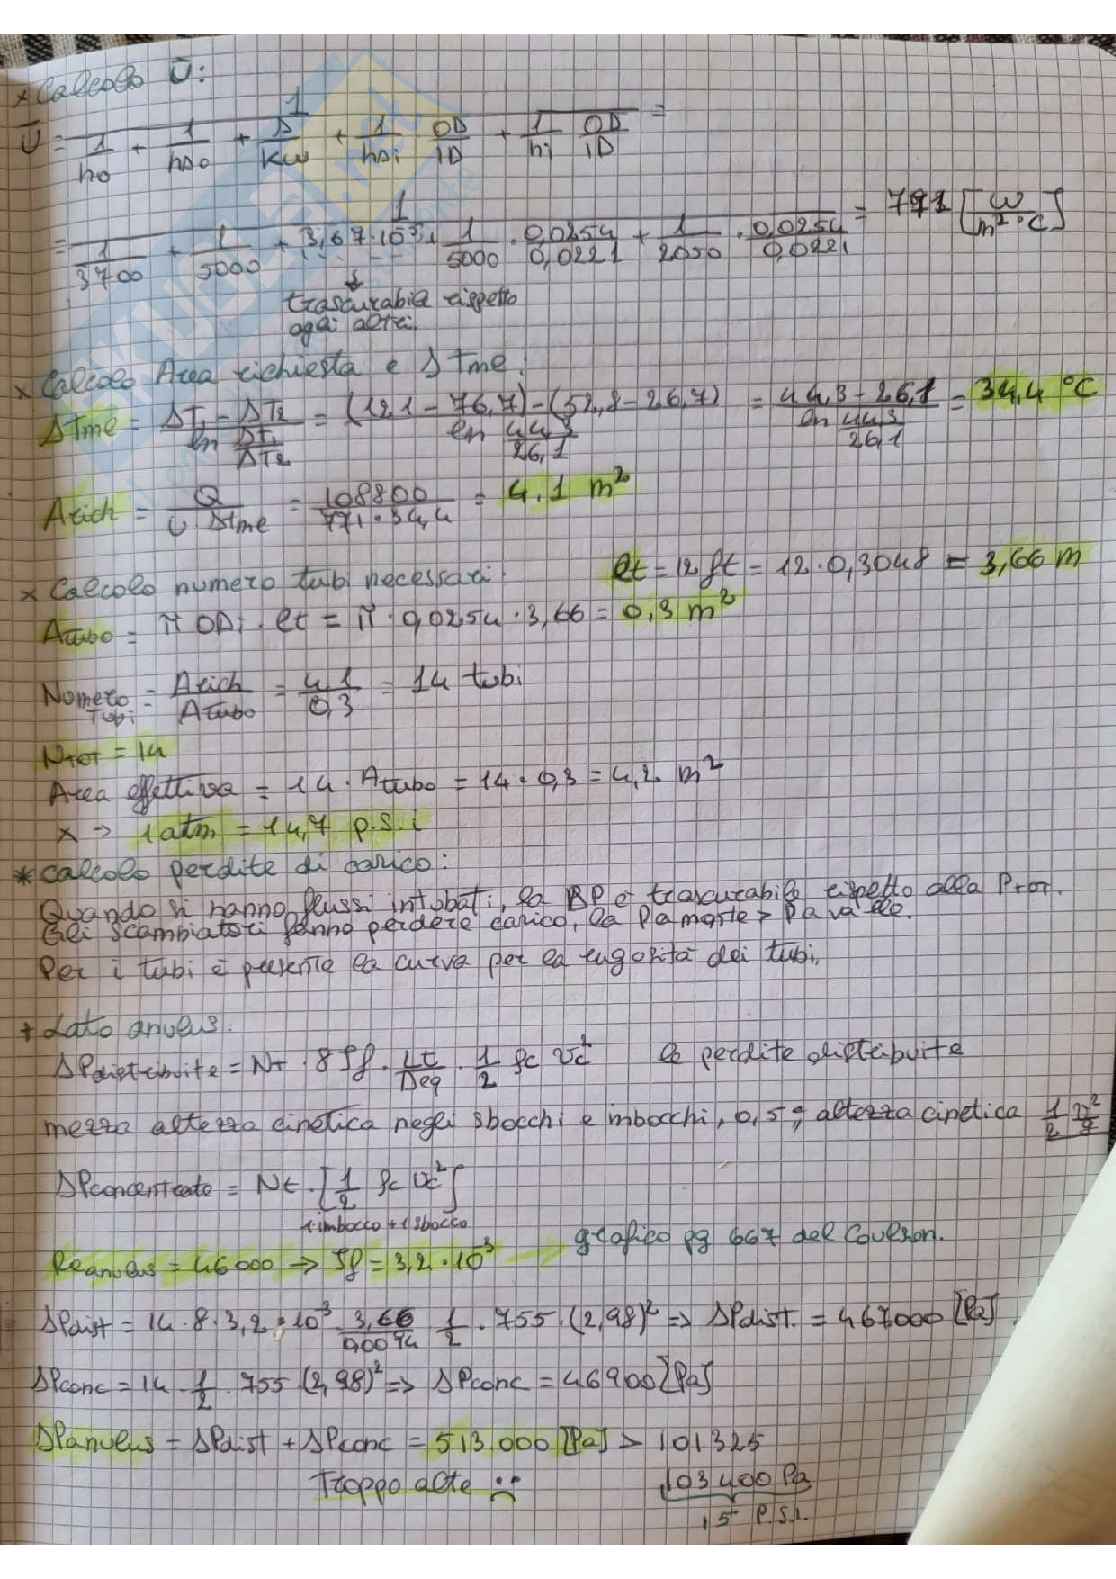 × Calcolo Ū:
Ū = 1 / (1/ho + 1/hDo + Δ/Kw + 1/hDi OD/ID + 1/hi OD/ID) =
= 1 / (1/3700 + 1/5000 + 3,67·10⁻³ + 1/5000 · 0,0254/0,0221 + 1/2050 · 0,0254/0,0221) = 771 [W/m²·°C]
trascurabile rispetto
agli altri.
× Calcolo Area richiesta e ΔTme:
ΔTme = (ΔT1 - ΔT2)/(ln ΔT1/ΔT2) = ((121-76,7)-(52,8-26,7))/(ln 44,3/26,1) = (44,3-26,1)/(ln 44,3/26,1) = 34,4 °C
Arich = Q/(U ΔTme) = 108800/(771·34,4) = 4.1 m²
× Calcolo numero tubi necessari: lt = 12 ft = 12·0,3048 = 3,66 m
Atubo = π ODi · lt = π·0,0254·3,66 = 0,3 m²
Numero tubi = Arich/Atubo = 4,1/0,3 = 14 tubi
NTOT = 14
Area effettiva = 14 · Atubo = 14·0,3 = 4,2 m²
× → 1 atm = 14,7 p.s.i
* Calcolo perdite di carico:
Quando si hanno flussi intubati, la ΔP è trascurabile rispetto alla Ptot.
Gli scambiatori fanno perdere carico, la Pamonte > Pavalle.
Per i tubi è presente la curva per la rugosità dei tubi.
* Lato anulus.
ΔPdistribuite = NT · 8 Jf · Lt/Deq · 1/2 ρc vc² le perdite distribuite
mezza altezza cinetica negli sbocchi e imbocchi, 0,5, altezza cinetica 1/2 v²/g
ΔPconcentrate = Nt · [1/2 ρc vc²]
1 imbocco + 1 sbocco
Reanulus = 46000 → Jf = 3,2·10⁻³ → grafico pg 667 del Coulson.
ΔPdist = 14·8·3,2·10⁻³ · 3,66/0,0094 · 1/2 · 755 · (2,98)² => ΔPdist. = 467000 [Pa]
ΔPconc = 14 · 1/2 · 755 (2,98)² => ΔPconc = 46900 [Pa]
ΔPanulus = ΔPdist + ΔPconc = 513.000 [Pa] > 101325
Troppo alte ☹ 103400 Pa
15 P.S.I.